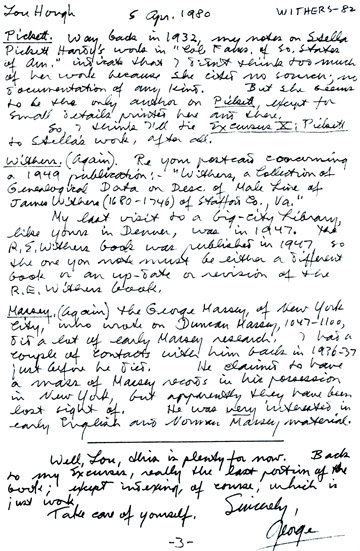 Lou Hough 5 Apr. 1980 WITHERS-82
Pickett. Way back in 1932, my notes on Stella
Pickett Hardy's work in "Col. Fams. of So. States
of Am." indicate that I didn't think too much
of her work because she cited no sources, no
documentation of any kind. But she seems
to be the only author on Pickett, except for
small details printed here and there.
So, I think I'll tie Excursus X; Pickett
to Stella's work, after all.
Withers. (Again). Re your postcard concerning
a 1949 publication:- "Withers, a Collection of
Genealogical Data on Desc. of Male Line of
James Withers (1680-1746) of Stafford Co., Va."
My last visit to a big-city library,
like yours in Denver, was in 1947. The
R.E. Withers book was published in 1947, so
the one you note must be either a different
book or an up-date or revision of the
R.E. Withers book.
Massey. (Again) The George Massey, of New York
City, who wrote on Duncan Massey, 1047-1100,
did a lot of early Massey research. I had a
couple of contacts with him back in 1936-37
just before he died. He claimed to have
a mass of Massey records in his possession
in New York, but apparently they have been
lost sight of. He was very interested in
early English and Norman Massey material.
Well, Lou, this is plenty for now. Back
to my Excursus, really the last portion of the
book; except indexing, of course, which is
just work.
Take care of yourself. Sincerely,
George
-3-